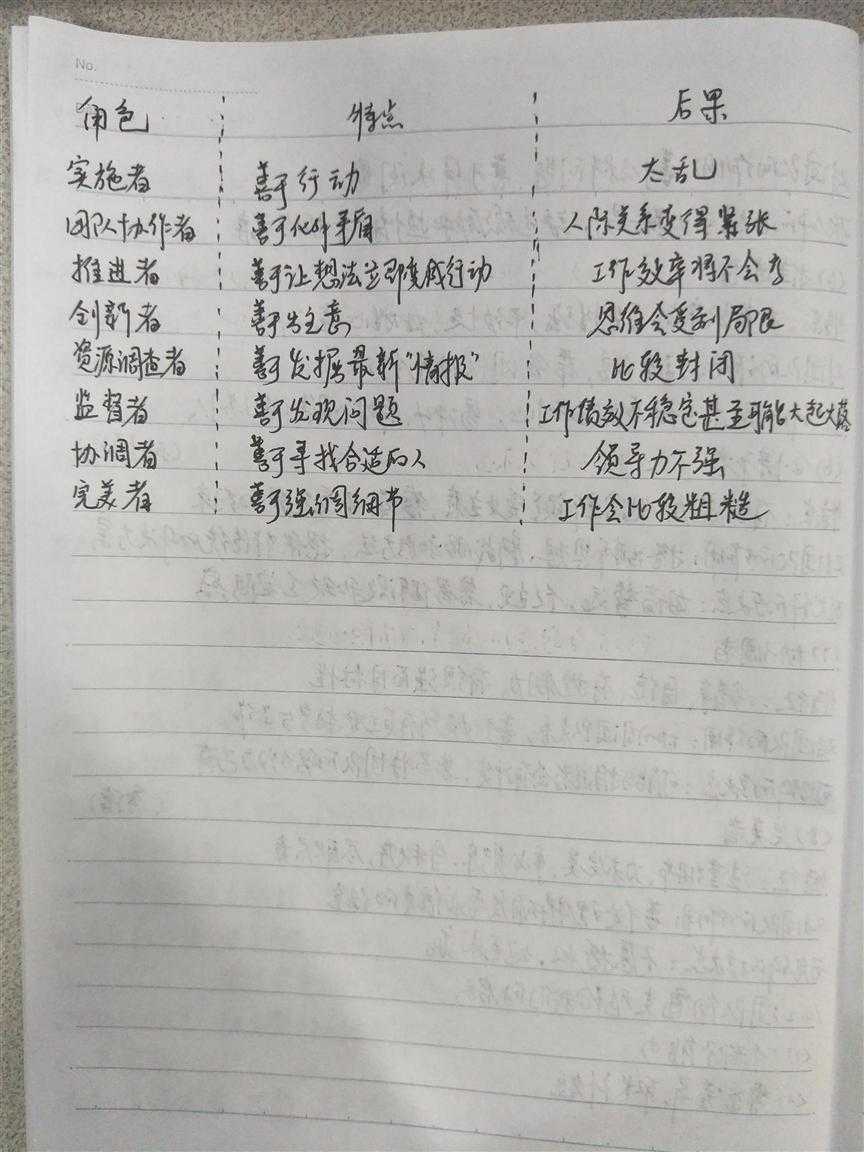 No.
角色 特点 后果
实施者 善于行动 太乱
团队协作者 善于化外矛盾 人际关系变得紧张
推进者 善于让想法立即变成行动 工作效率将不会高
创新者 善于出主意 思维会受到局限
资源调查者 善于发掘最新“情报” 比较封闭
监督者 善于发现问题 工作绩效不稳定甚至可能大起大落
协调者 善于寻找合适的人 领导力不强
完美者 善于强调细节 工作会比较粗糙